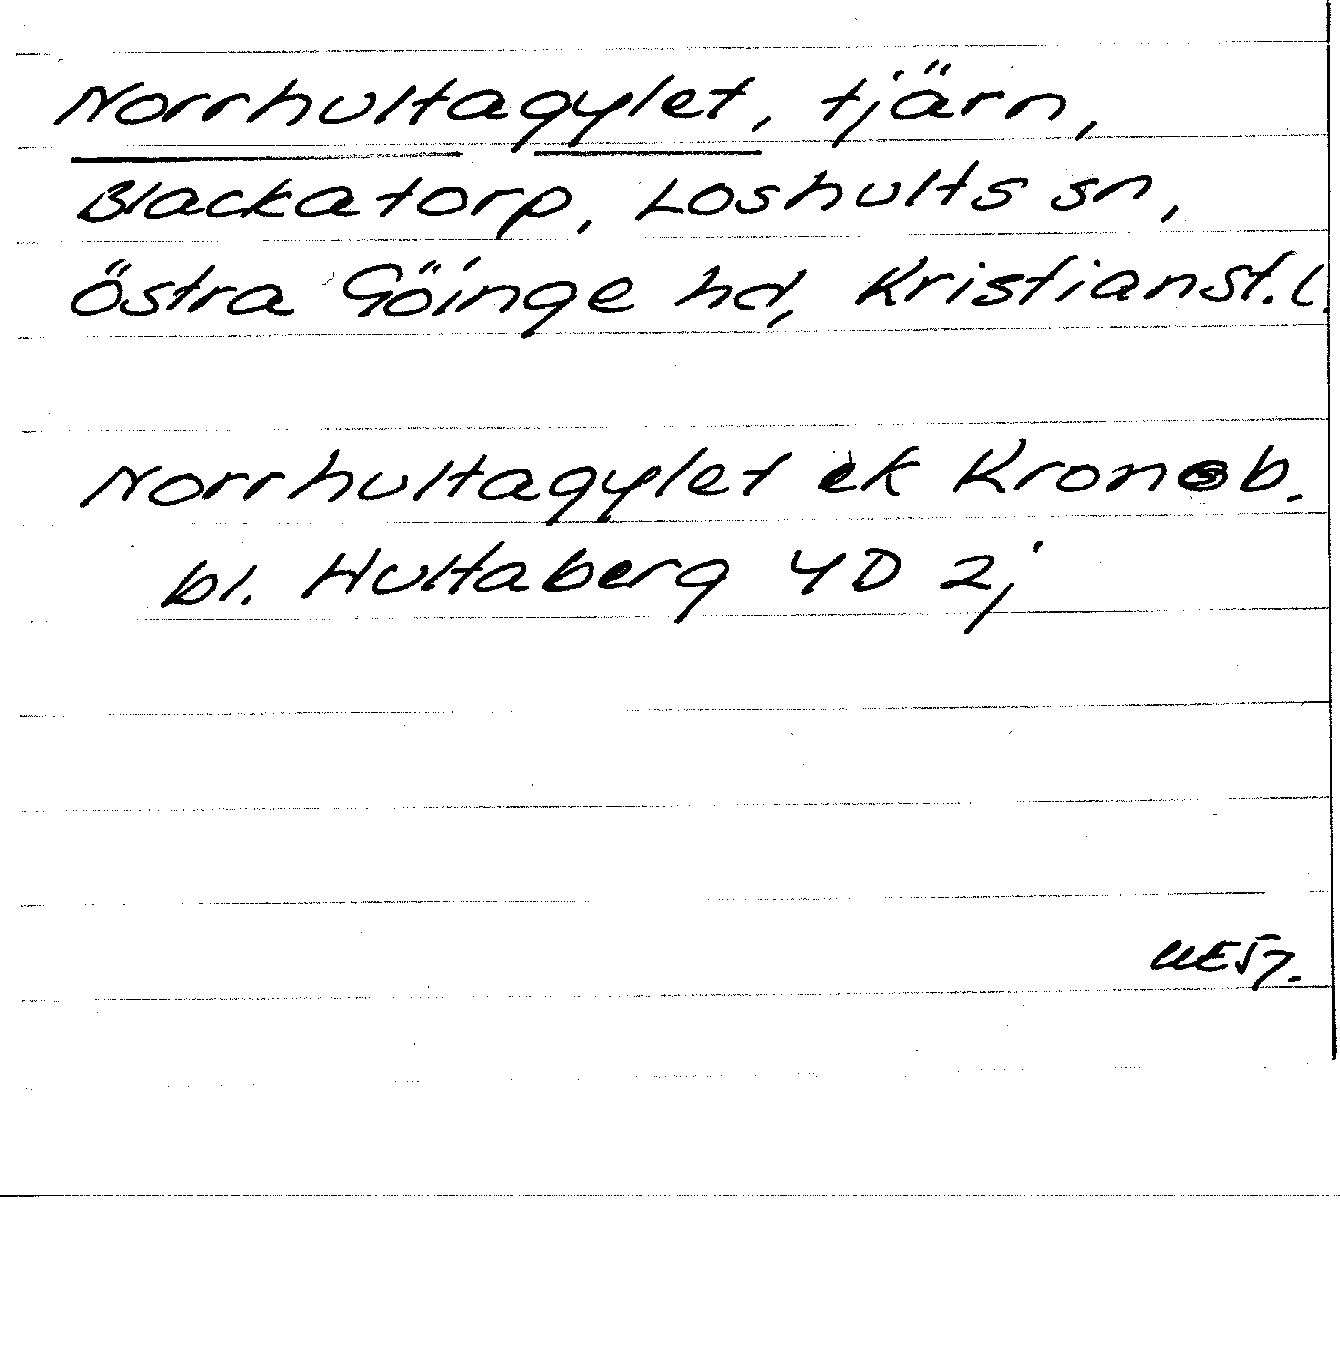 Norrhultagylet, tjärn,
Blackatorp, Loshults sn,
Östra Göinge hd, Kristianst. l.
Norrhultagylet ek Kronob.
bl. Hultaberg 4D 2j